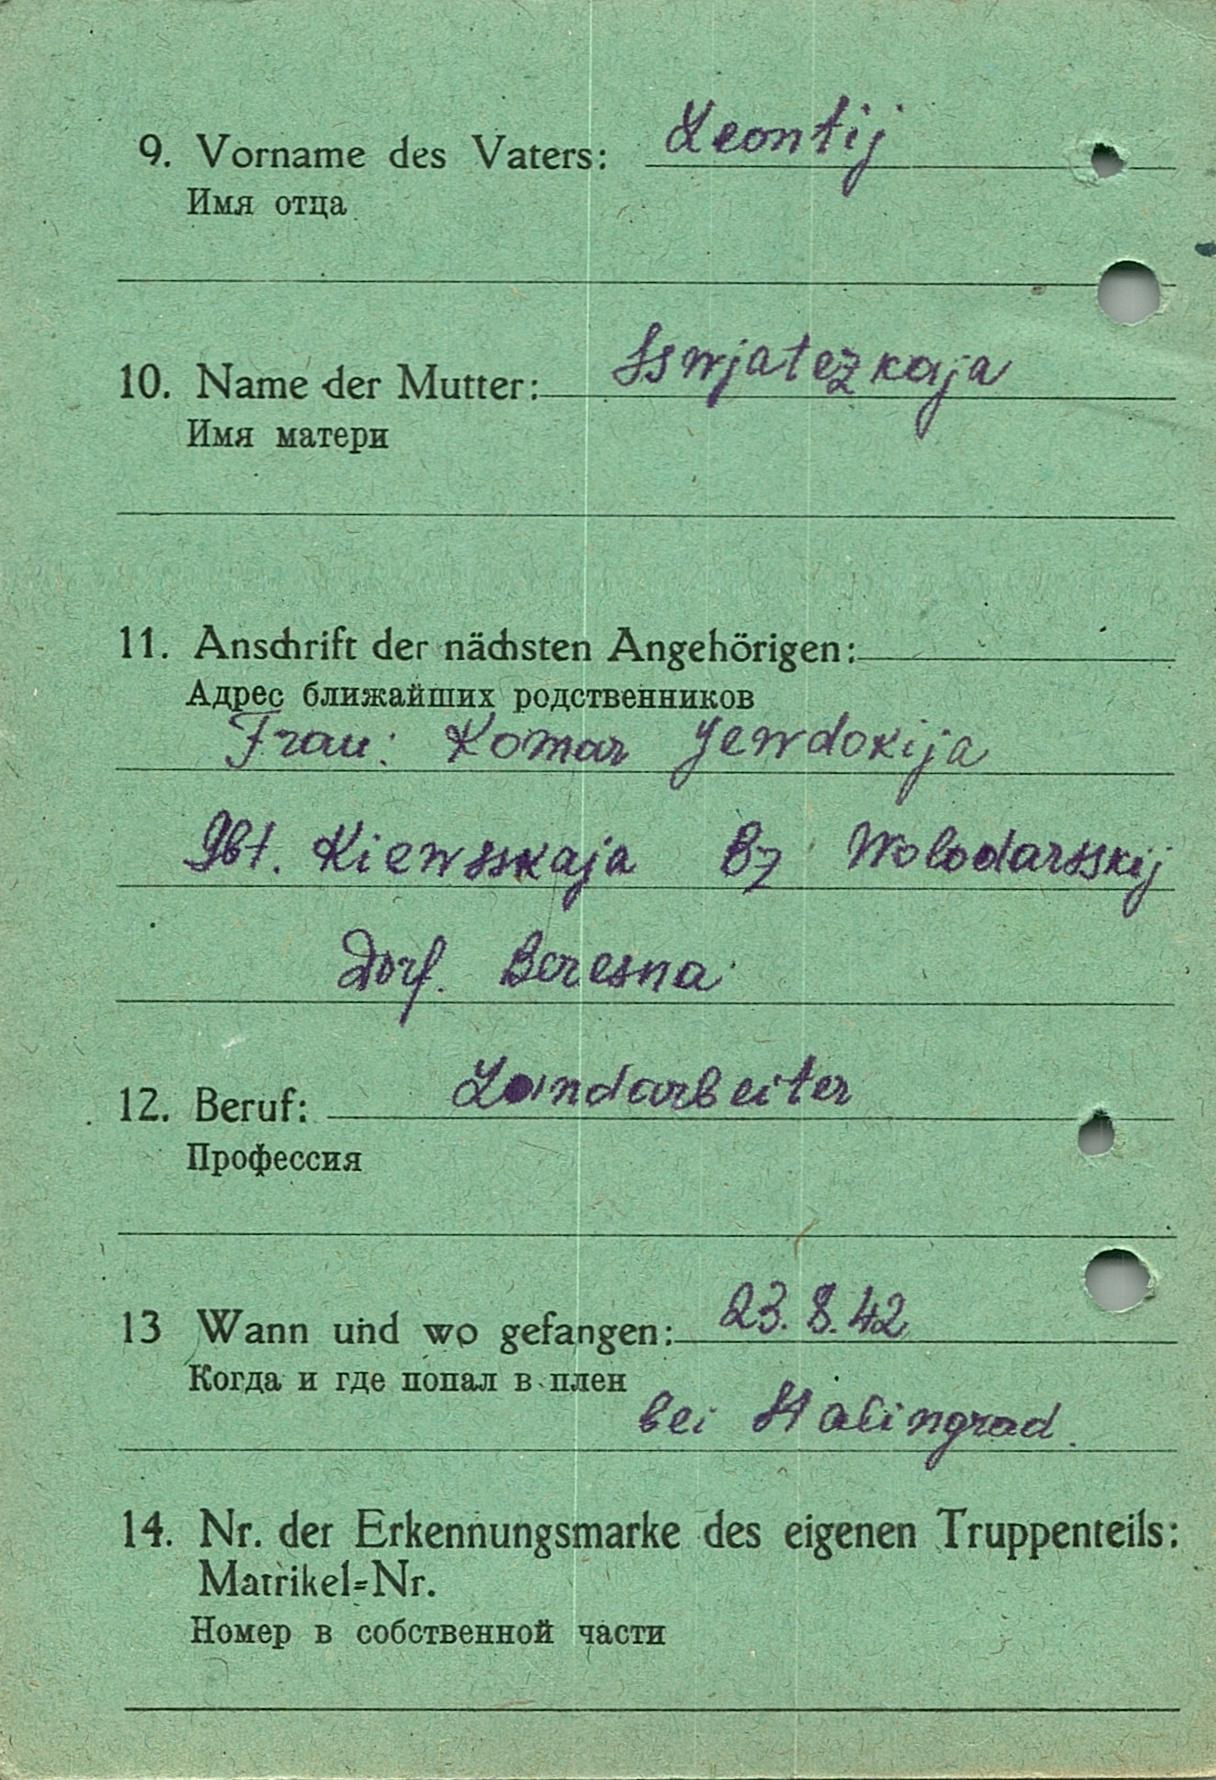 9. Vorname des Vaters: Leontij
Имя отца
10. Name der Mutter: Sswjatezkaja
Имя матери
11. Anschrift der nächsten Angehörigen:
Адрес ближайших родственников
Frau: Komar Jewdokija
Gbt. Kiewsskaja Bz Wolodarsskij
Dorf. Beresna
12. Beruf: Landarbeiter
Профессия
13 Wann und wo gefangen: 23.8.42
Когда и где попал в плен
bei Stalingrad.
14. Nr. der Erkennungsmarke des eigenen Truppenteils:
Matrikel=Nr.
Номер в собственной части